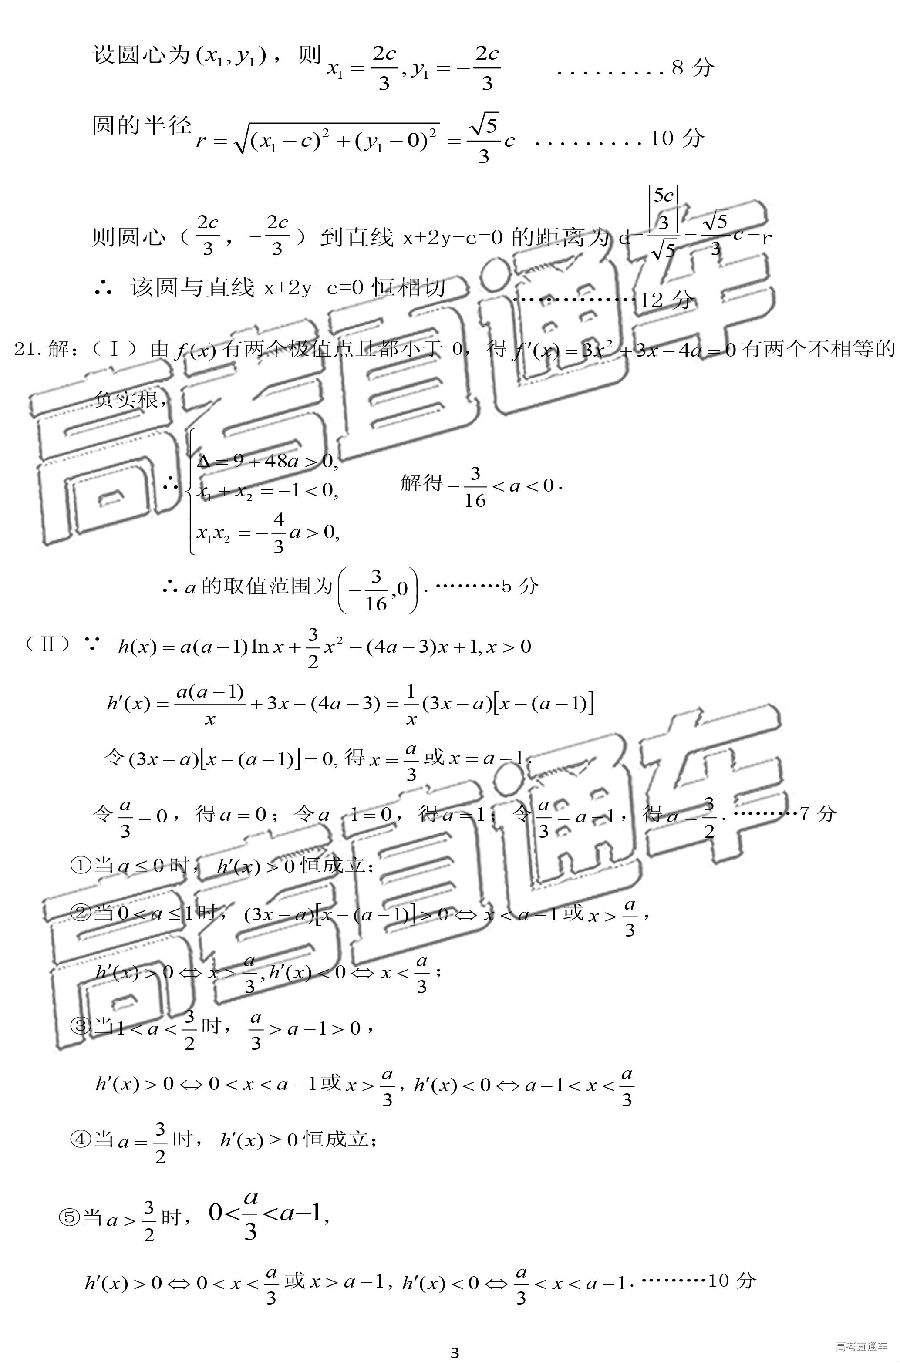 设圆心为(x₁,y₁)，则 x₁ = 2c/3, y₁ = −2c/3 .........8分
圆的半径 r = √((x₁−c)²+(y₁−0)²) = (√5/3)c .........10分
则圆心（2c/3，−2c/3）到直线 x+2y−c=0 的距离为 d=|5c/3|/√5=(√5/3)c=r
∴ 该圆与直线 x+2y c=0 恒相切 ...............12分
21.解：（Ⅰ）由 f(x) 有两个极值点且都小于 0，得 f′(x) = 3x²+3x−4a = 0 有两个不相等的
负实根，
∴ { Δ = 9+48a > 0,
x₁+x₂ = −1 < 0, 解得 −3/16 < a < 0 .
x₁x₂ = −(4/3)a > 0,
∴ a 的取值范围为 (−3/16,0) . .........5分
（Ⅱ）∵ h(x) = a(a−1)ln x + (3/2)x² − (4a−3)x + 1, x > 0
h′(x) = a(a−1)/x + 3x − (4a−3) = (1/x)(3x−a)[x−(a−1)]
令 (3x−a)[x−(a−1)] = 0, 得 x = a/3 或 x = a−1,
令 a/3 = 0，得 a = 0；令 a 1 = 0，得 a = 1；令 a/3 = a−1，得 a = 3/2 . .........7分
①当 a ≤ 0 时，h′(x) > 0 恒成立；
②当 0 < a ≤ 1 时，(3x−a)[x−(a−1)] > 0 ⇔ x < a−1 或 x > a/3，
h′(x) > 0 ⇔ x > a/3, h′(x) < 0 ⇔ x < a/3；
③当 1 < a < 3/2 时，a/3 > a−1 > 0，
h′(x) > 0 ⇔ 0 < x < a 1 或 x > a/3, h′(x) < 0 ⇔ a−1 < x < a/3
④当 a = 3/2 时，h′(x) > 0 恒成立；
⑤当 a > 3/2 时，0 < a/3 < a−1，
h′(x) > 0 ⇔ 0 < x < a/3 或 x > a−1, h′(x) < 0 ⇔ a/3 < x < a−1 . .........10分
3
高考直通车
高考直通车
高考直通车